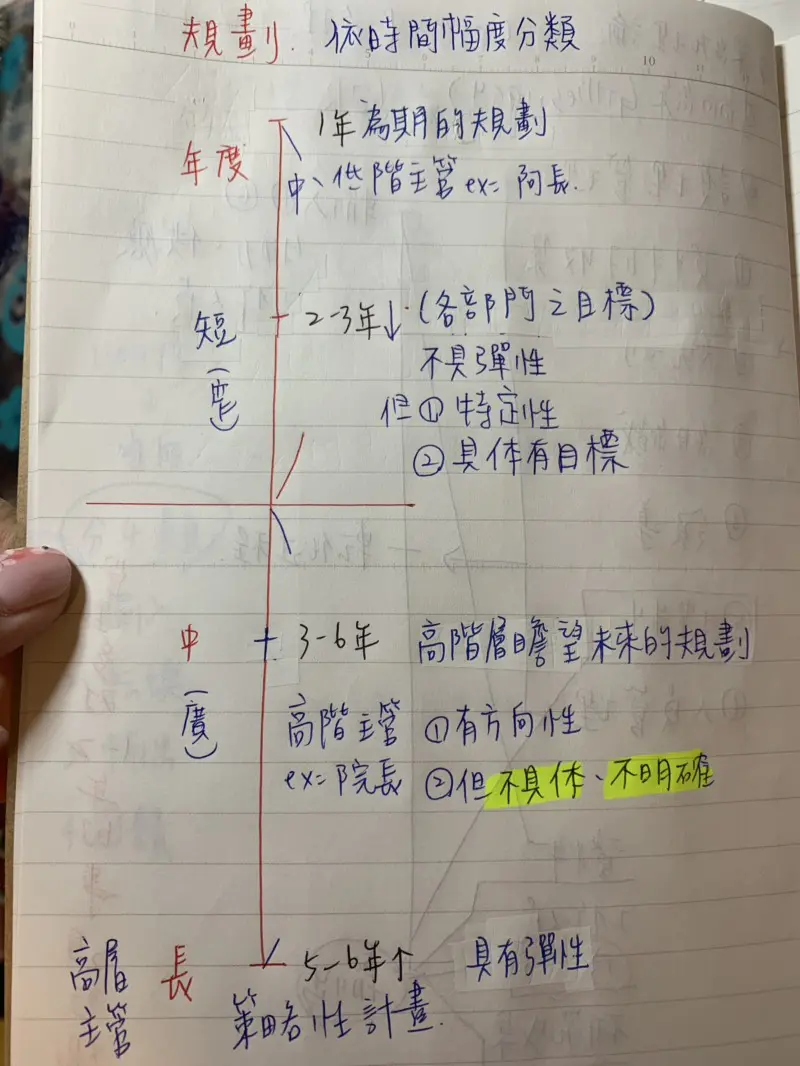 規劃. 依時間幅度分類
1年為期的規劃
年度
中、低階主管 ex= 阿長.
2-3年↓ (各部門之目標)
短
不具彈性
但 ① 特定性
② 具体有目標
中 3-6年 高階層瞻望未來的規劃
(廣)
高階主管 ①有方向性
ex=院長 ②但不具体、不明確
高層主管
長 5-6年↑ 具有彈性
策略性計畫.